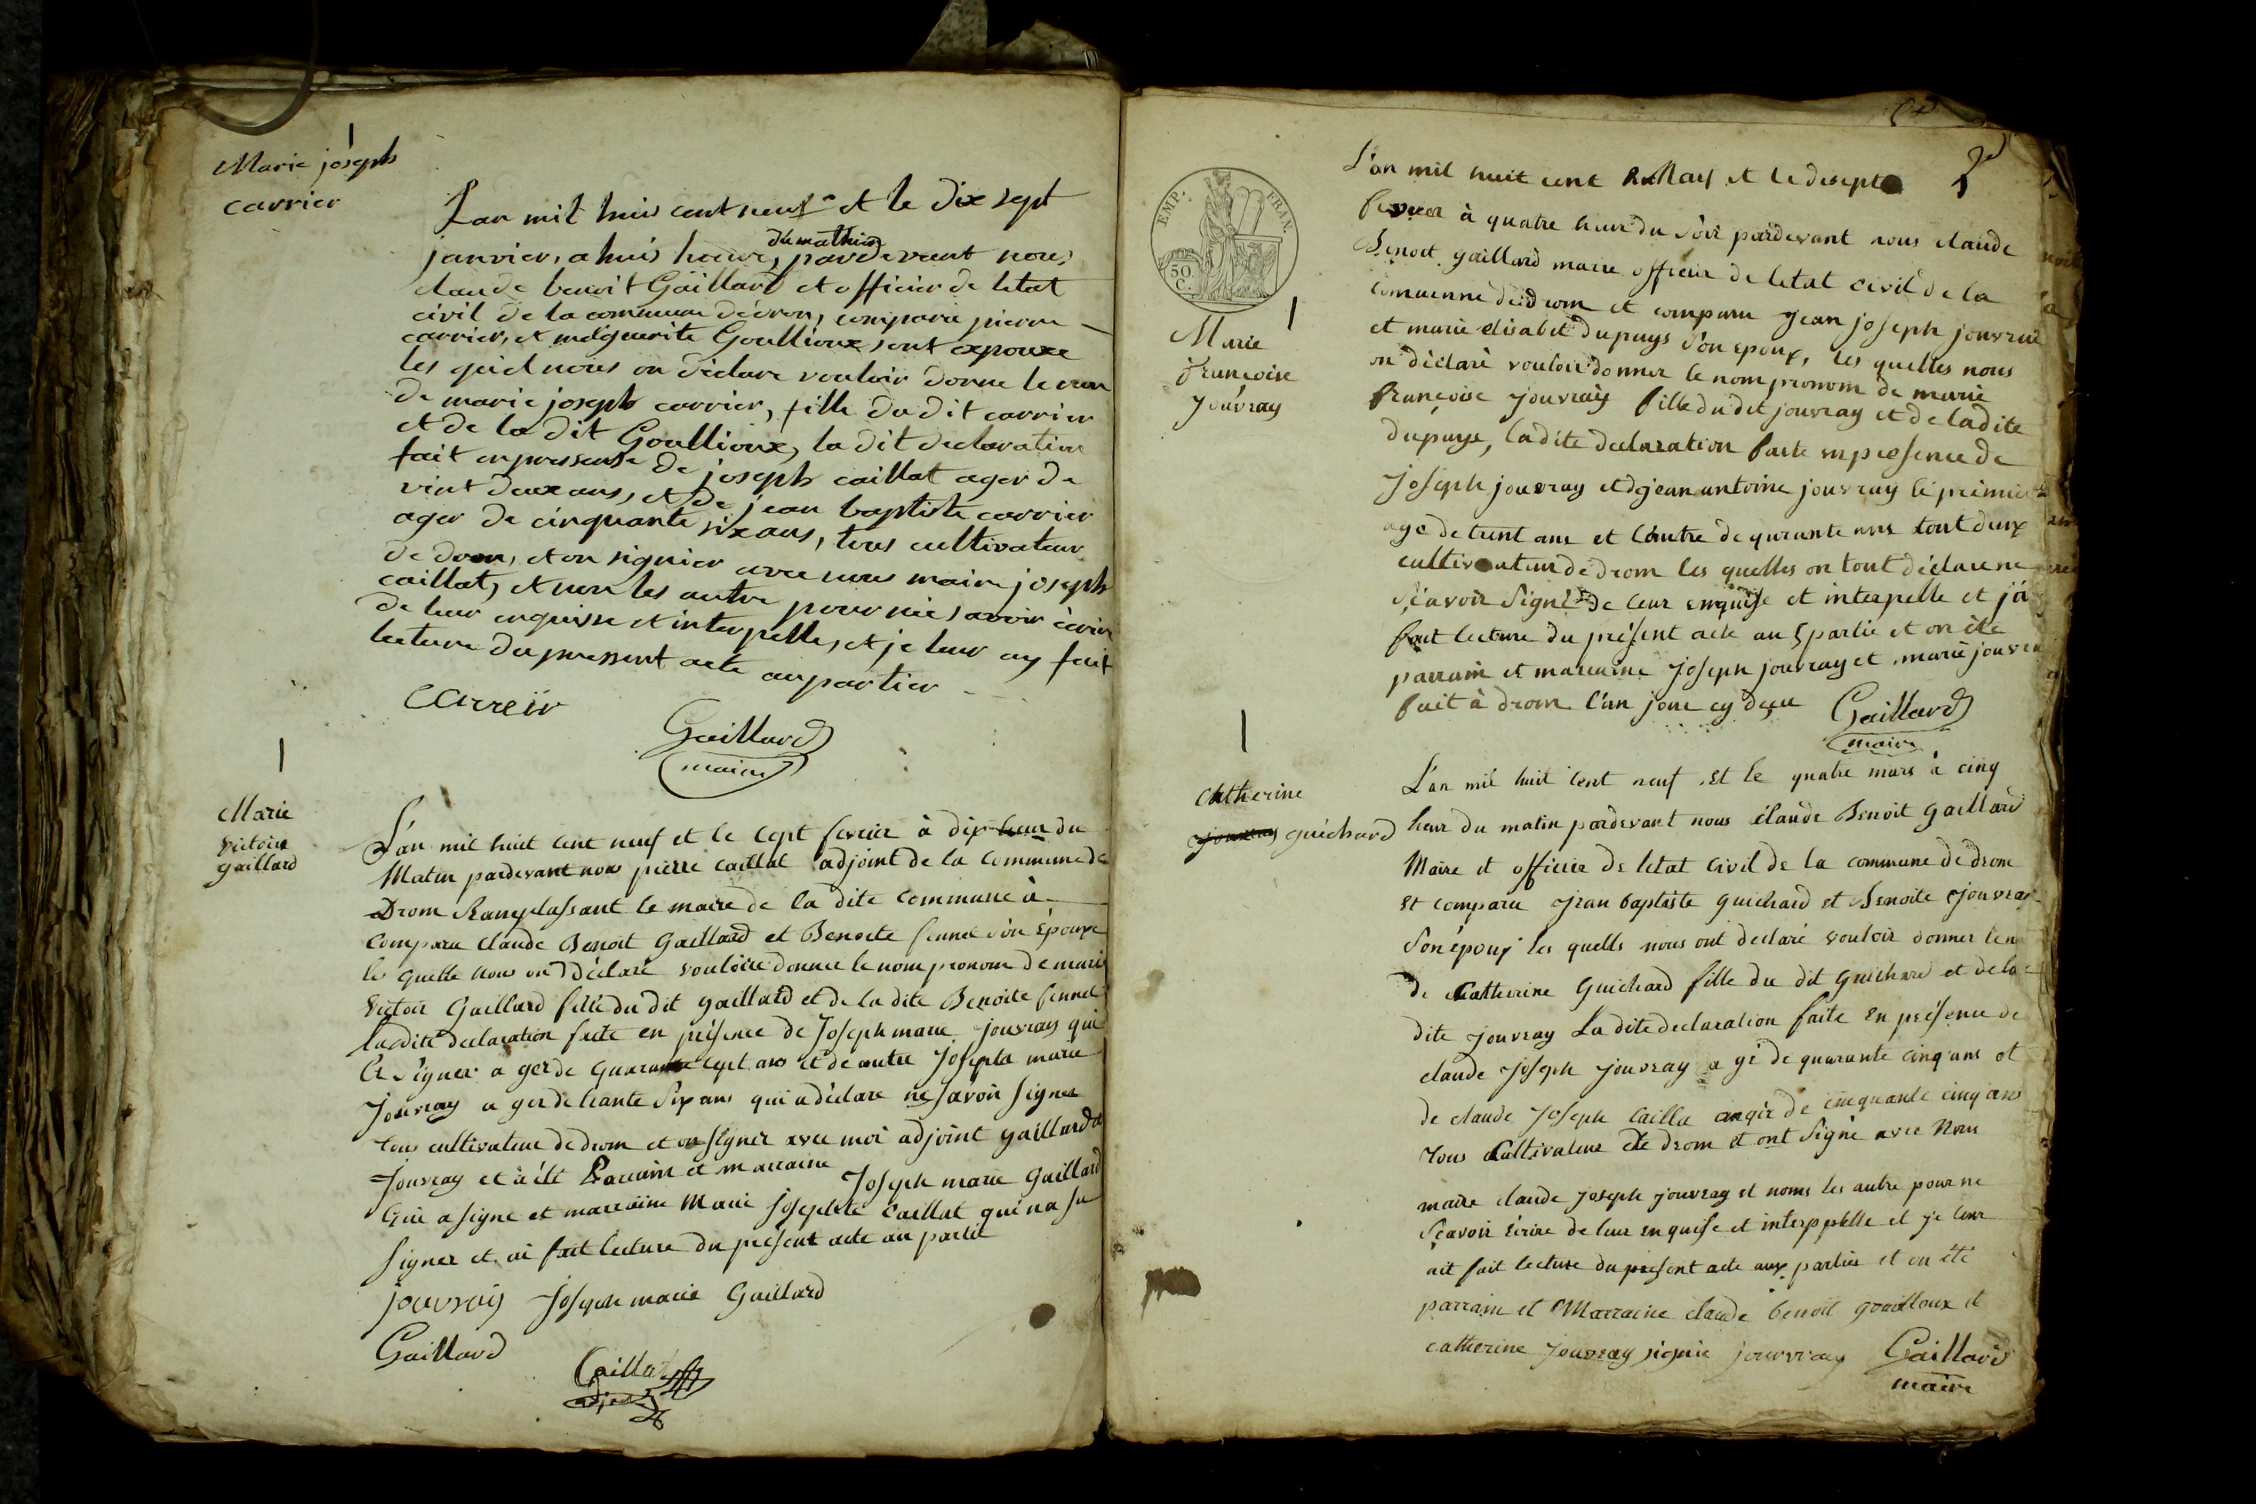 Marie joseph
carrier
Lan mil huis cent neuf et le dix sept
janvier, a huis heure, du mathin pardevant nous
claude benoit Gaillard et officier de letat
civil de la commune dedrom, comparu pierre
carrier, et melguerite Goullioux, sont expouxe
les quel nous on déclare vouloir donne le nom
de marie joseph carrier, fille du dit carrier
et de la dit Goullioux, la dit declaration
fait en pressense de joseph caillat ager de
vint deux ans, et de jean baptiste carrier
ager de cinquante six ans, tous cultivateur
de drom, et on signier avec nous maire joseph
caillat, et non les autre pour nie savoir écrir
de leur enquisse et interpelle, et je leur ay fait
lecture du pressent acte au partier
carreir
Gaillard
maire
Marie
Victoire
gaillard
L'an mil huit cent neuf et le sept fevrier à dix heur du
Matin pardevant nous pierre caillat adjoint de la Commune de
Drom Ramplassant le maire de la dite commune à
Comparu claude Benoit Gaillard et Benoite fennet son Épouxe
les quelle nous on déclaré vouloire donner le nom pronom de marie
Victoir Gaillard fille du dit gaillard et de la dite Benoite fennet
la dite declaration faite en présence de Joseph marie jouvray qui
a signer a ger de quarante sept ans et de autre Joseph marie
Jouvray a ger de trante six ans qui a déclare ne savoir signer
tous cultivateur de drom et on signer avec moi adjoint gaillard et
Jouvray et a été Parrain et marraine Joseph marie Gaillard
Qui a signe et marraine Marie josephte Caillat qui na su
signer et ai fait lecture du présent acte au partit
jouvray Joseph marie Gaillard
Gaillard
Caillat
adjoint
EMP. FRAN.
50
C.
L'an mil huit cent Neuf et le disepte
fevrier à quatre heur du soir pardevant nous claude
Benoit gaillard maire officier de letat civil de la
comuenne de drom et comparu jean joseph jouvrai
et marie elisabet dupuys son epoux, les quelles nous
on déclaré vouloir donner le nom pronom de marie
françoise jouvray fille du dit jouvray et de ladite
dupuys, ladite declaration faite en presence de
Joseph jouvray et de jean antoine jouvray le premier
age de trent ans et l'autre de quarante ans tout deux
cultivateur de drom les quelles on tout déclare ne
sçavoir signé de leur enquise et interpelle et jà
fait lecture du présent acte au partie et on été
parrain et marraine Joseph jouvray et marie jouvray
fait à drom l'an jour cy deçu Gaillard
maire
Marie
françoise
Jouvray
Catherine
jouvray guichard
L'an mil huit cent neuf et le quatre mars à cinq
heur du matin pardevant nous claude Benoit gaillard
Maire et officier de letat civil de la commune de drom
et comparu jean baptiste guichard et Benoite jouvray
son époux les quells nous ont declaré vouloir donner le n
de Catherine Guichard fille du dit guichard et de la
dite jouvray La dite declaration faite en présence de
claude joseph jouvray a gé de quarante cinq ans et
de claude Joseph Cailla angér de cinquante cinq ans
tous cultivateur de drom et ont signé avec Nous
maire claude joseph jouvray et noms les autre pour ne
sçavoir écrire de leur enquise et interppelle et je leur
ait fait lecture du présent acte aux parties et on été
parrain et Marraine claude benoit goulloux et
catherine jouvray signié jouvray Gaillard
maire